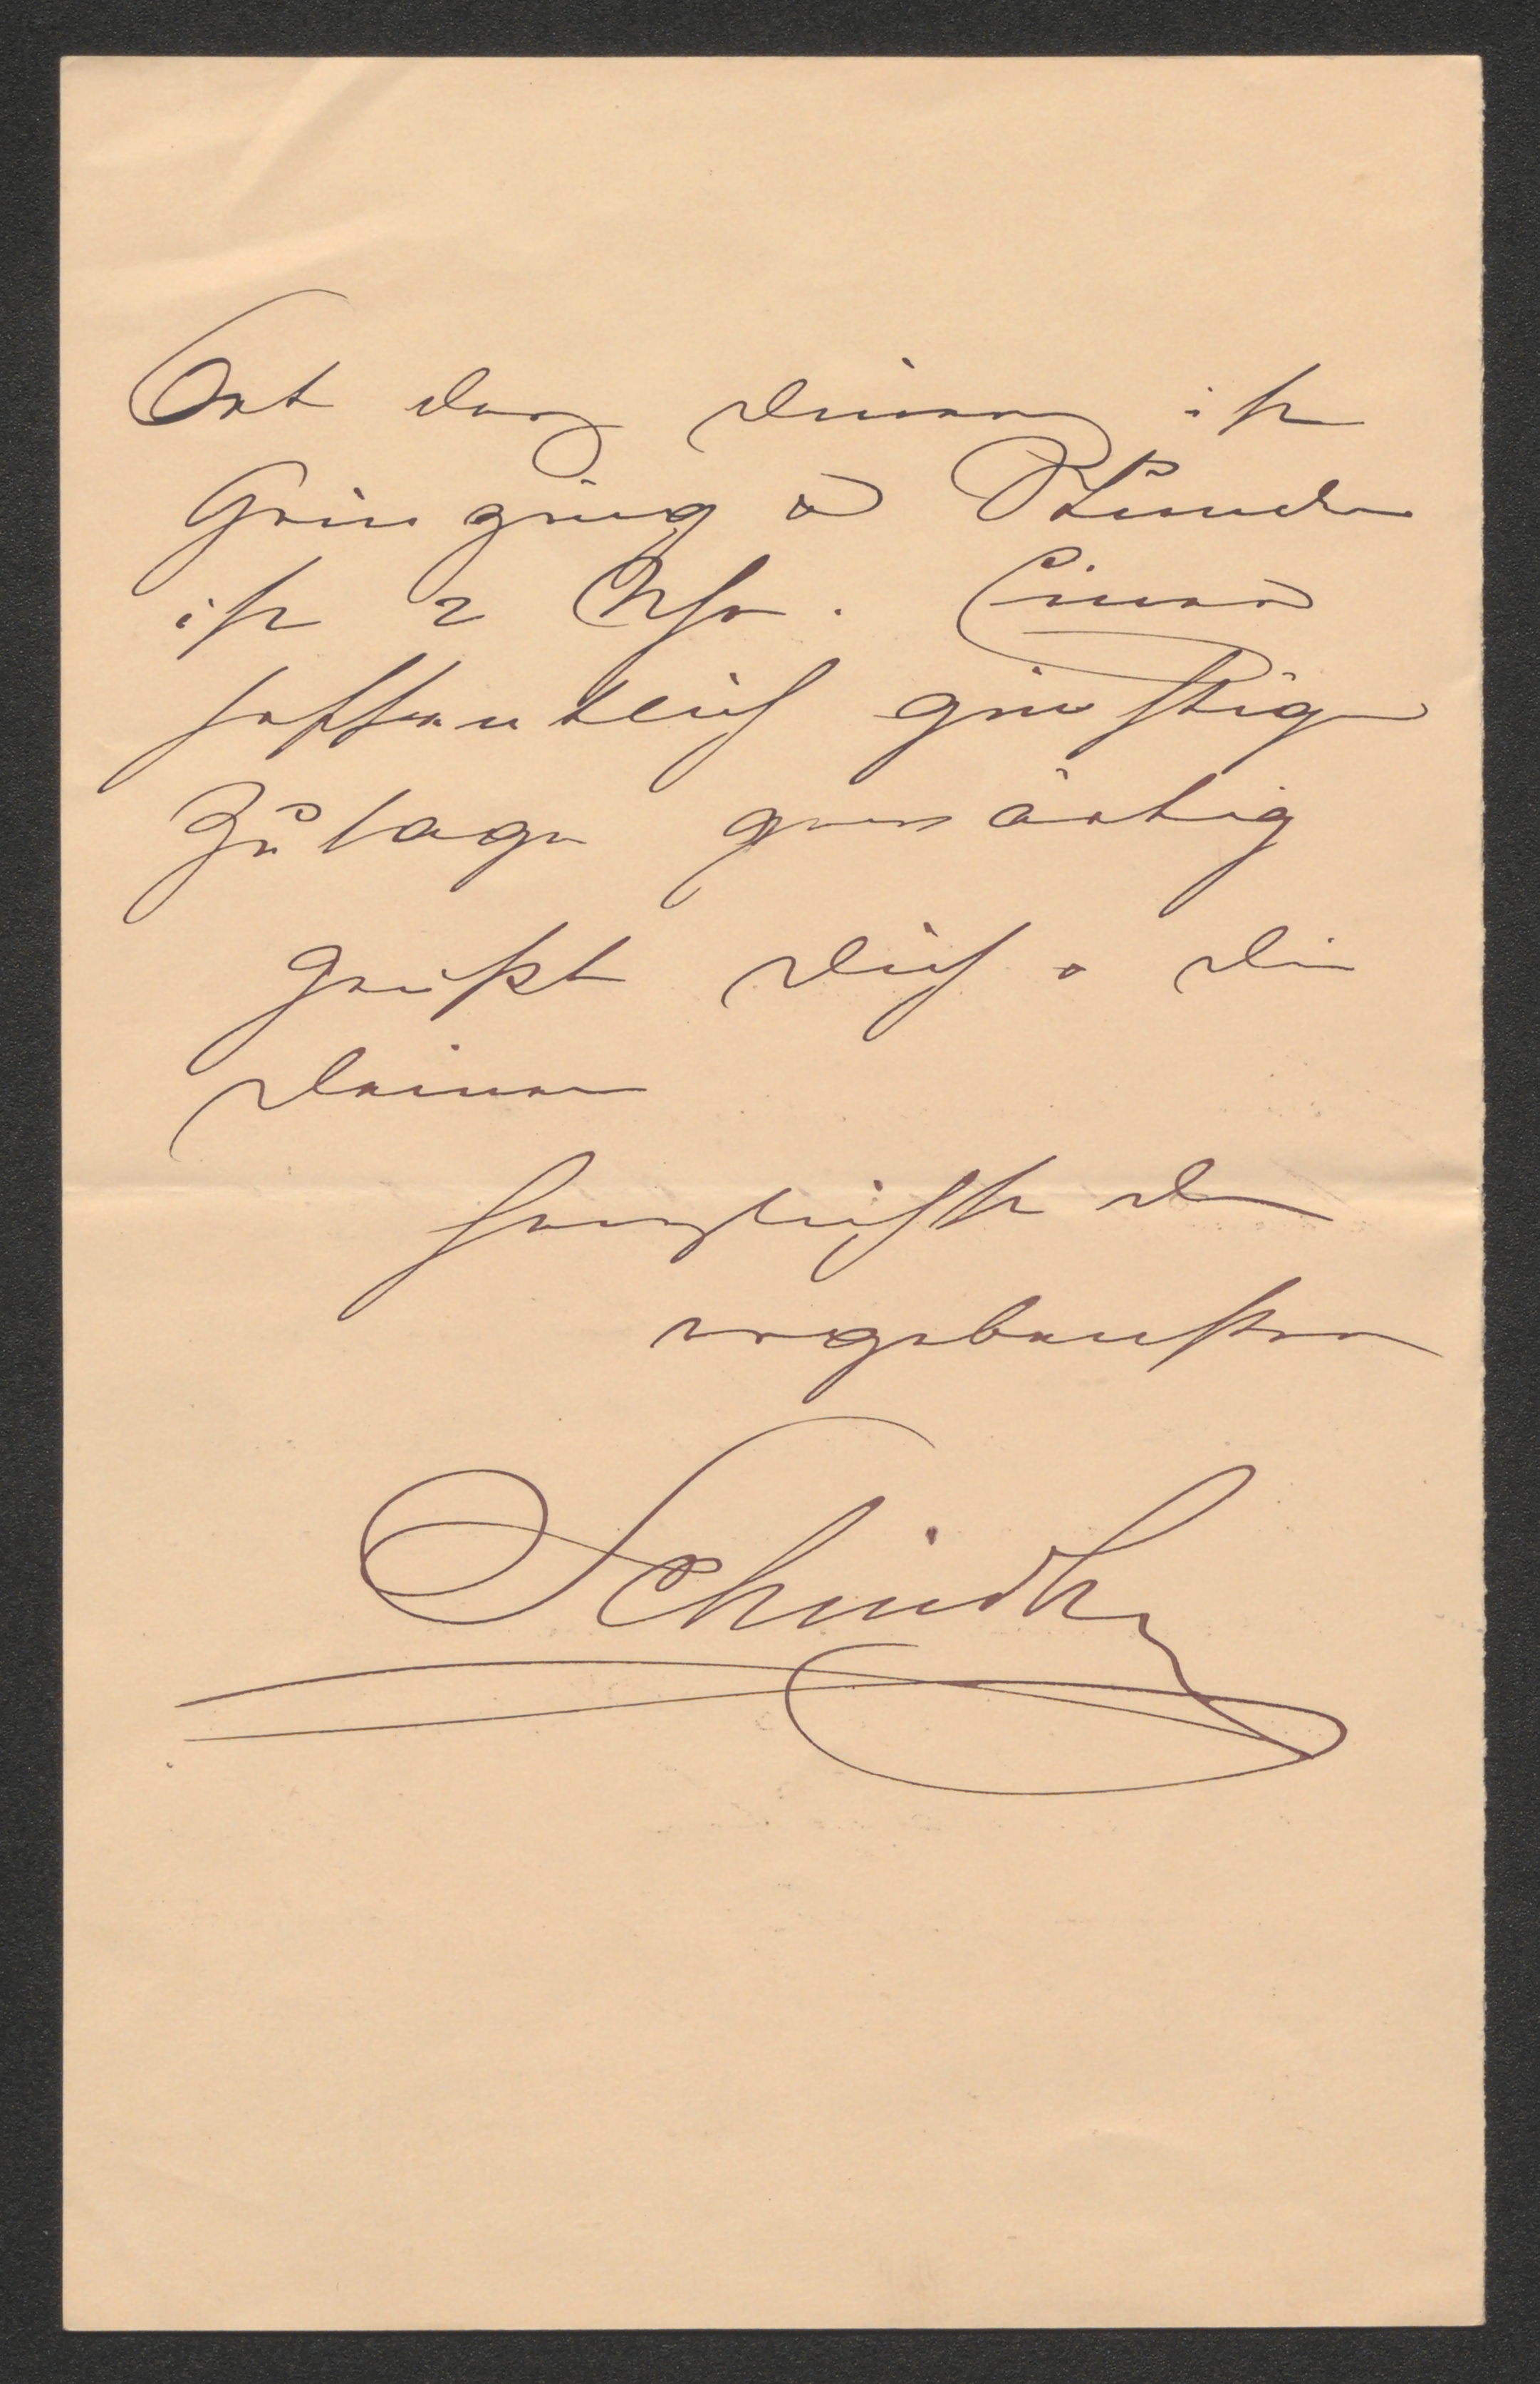 Ort des Diners ist
Grinzing u Stunde
ist 2 Uhr. Einer
hoffentlich günstigen
Zusage gewärtig
grüßt Dich u die
Deinen
herzlichst der
ergebenste
Schindler